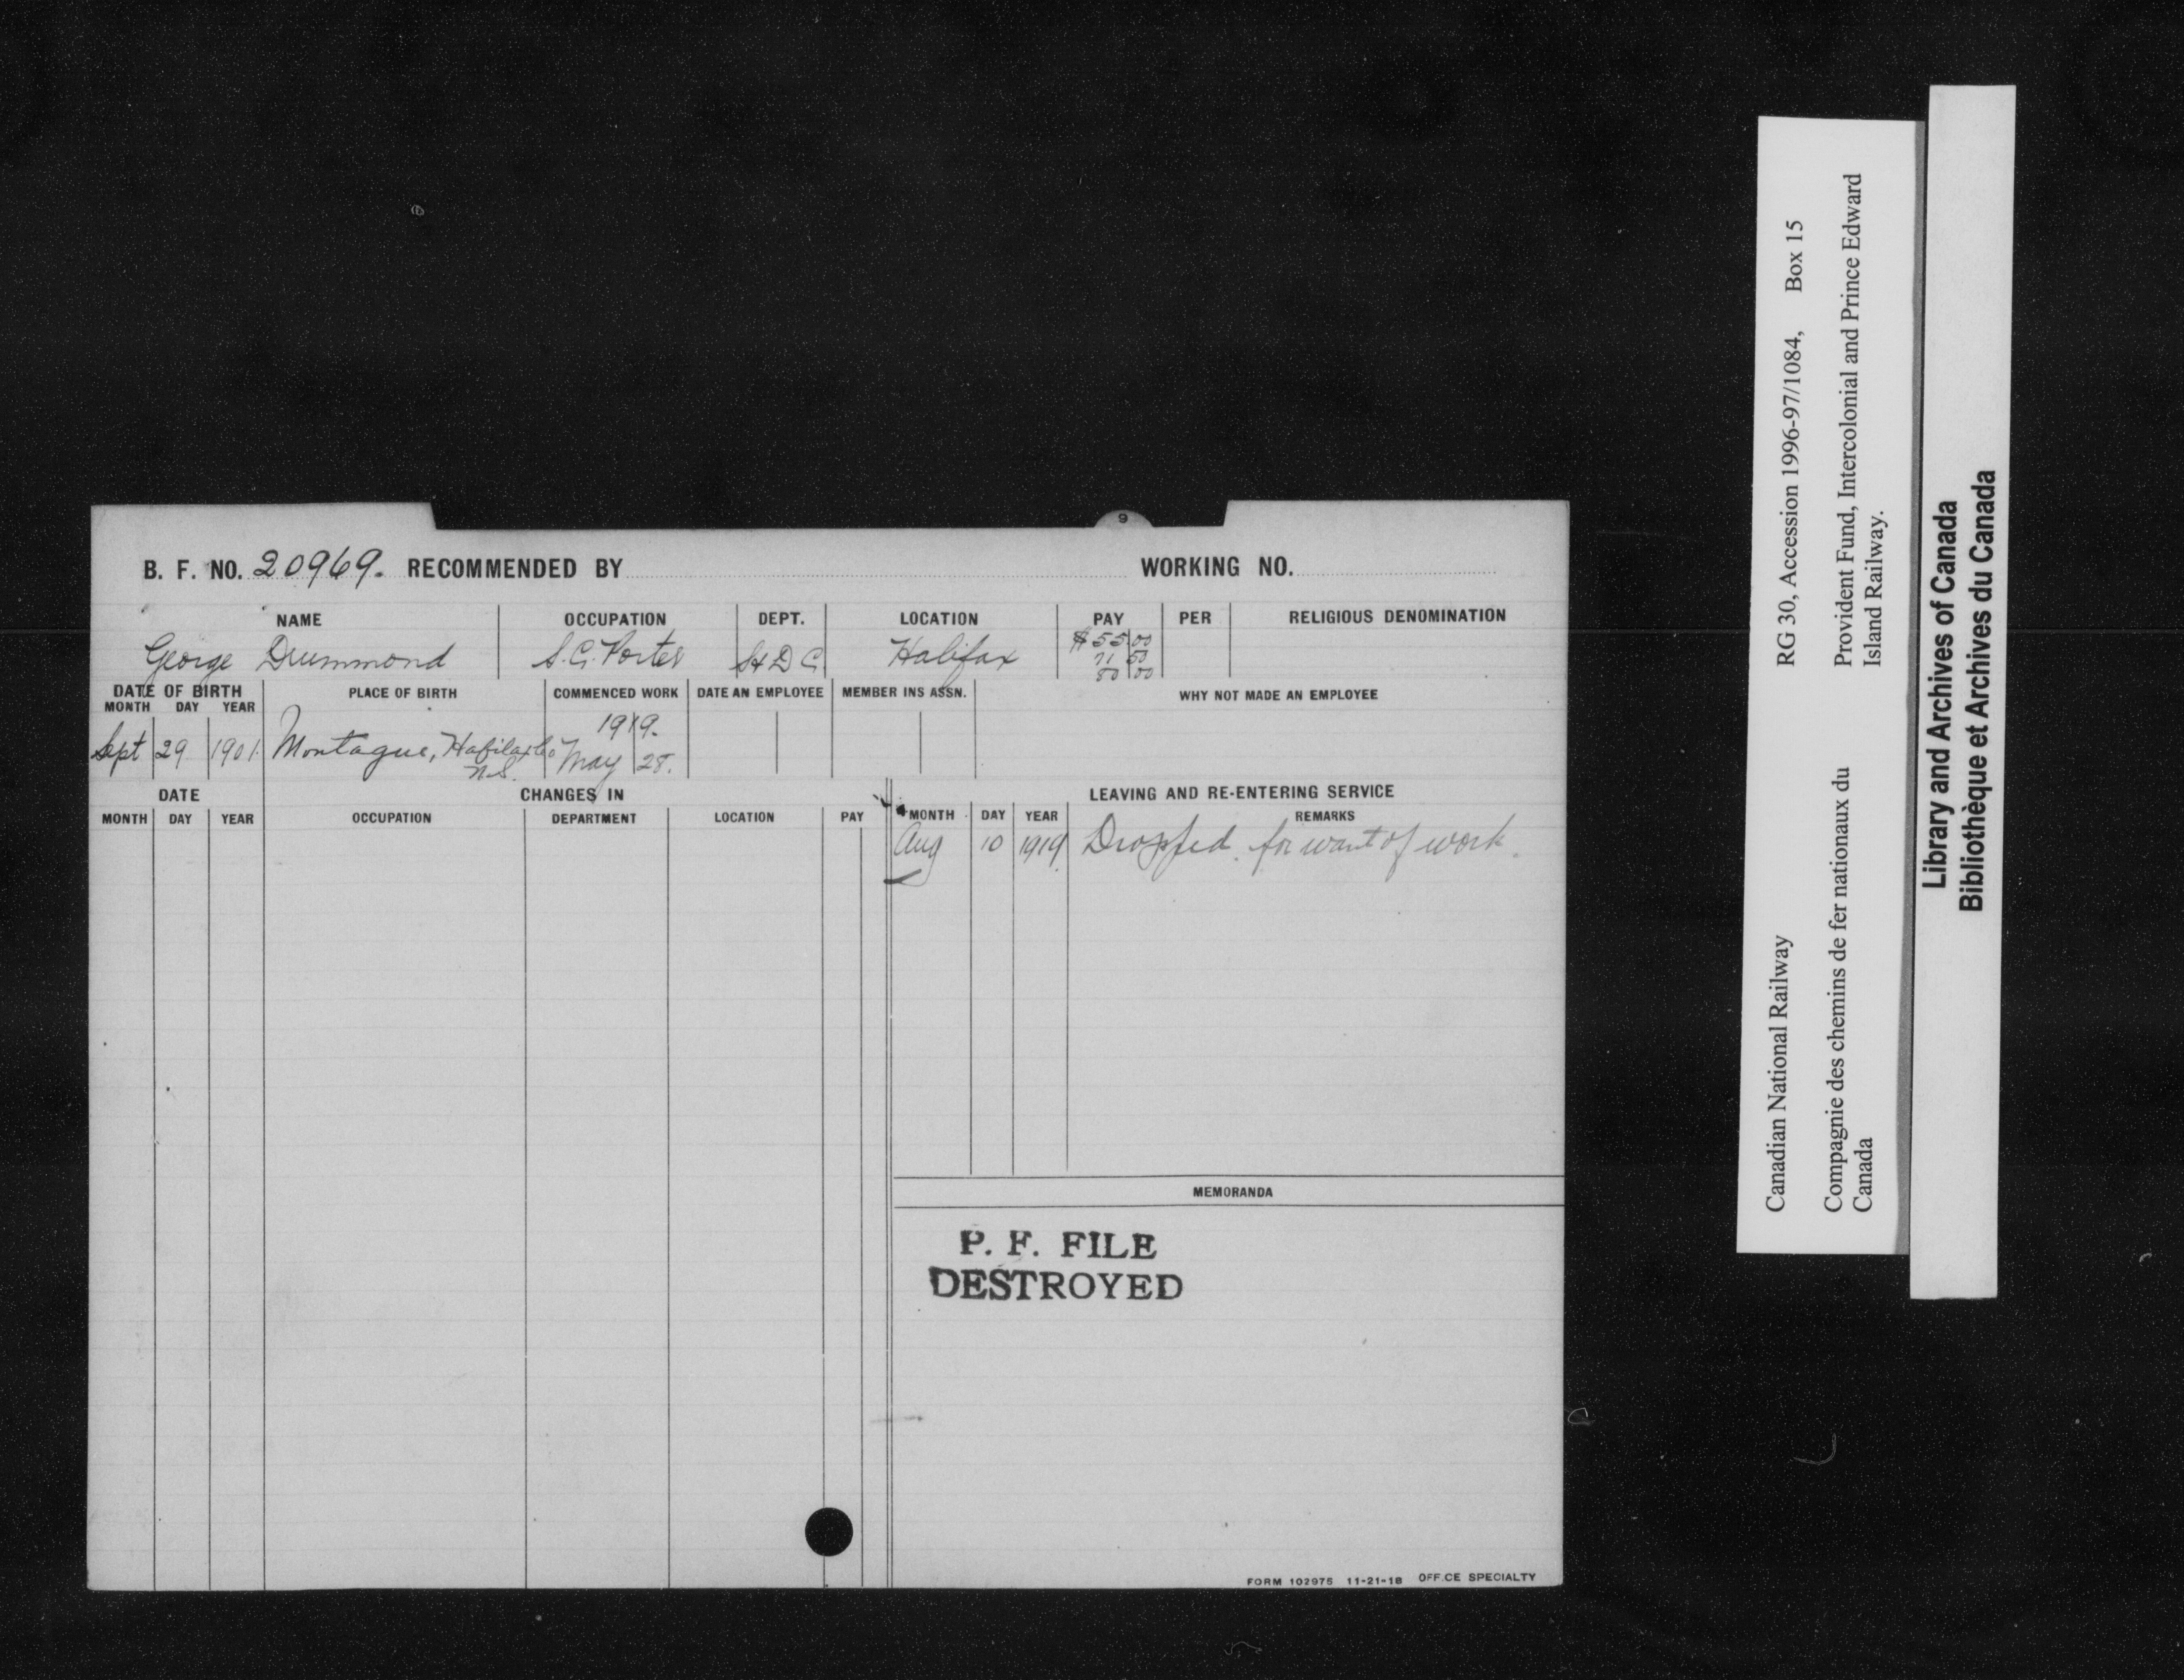 B. F. NO. 20969. RECOMMENDED BY WORKING NO.
9
NAME OCCUPATION DEPT. LOCATION PAY PER RELIGIOUS DENOMINATION
George Drummond S.C. Porter S&DC Halifax $55 00
71 50
80 00
DATE OF BIRTH PLACE OF BIRTH COMMENCED WORK DATE AN EMPLOYEE MEMBER INS ASSN. WHY NOT MADE AN EMPLOYEE
MONTH DAY YEAR
1919.
Sept 29 1901. Montague, Halifax Co May 28.
N.S.
DATE CHANGES IN LEAVING AND RE-ENTERING SERVICE
MONTH DAY YEAR OCCUPATION DEPARTMENT LOCATION PAY MONTH DAY YEAR REMARKS
Aug 10 1919 Dropped for want of work.
MEMORANDA
P. F. FILE
DESTROYED
FORM 102975 11-21-18 OFFICE SPECIALTY
Canadian National Railway RG 30, Accession 1996-97/1084, Box 15
Compagnie des chemins de fer nationaux du Provident Fund, Intercolonial and Prince Edward
Canada Island Railway.
Library and Archives of Canada
Bibliothèque et Archives du Canada